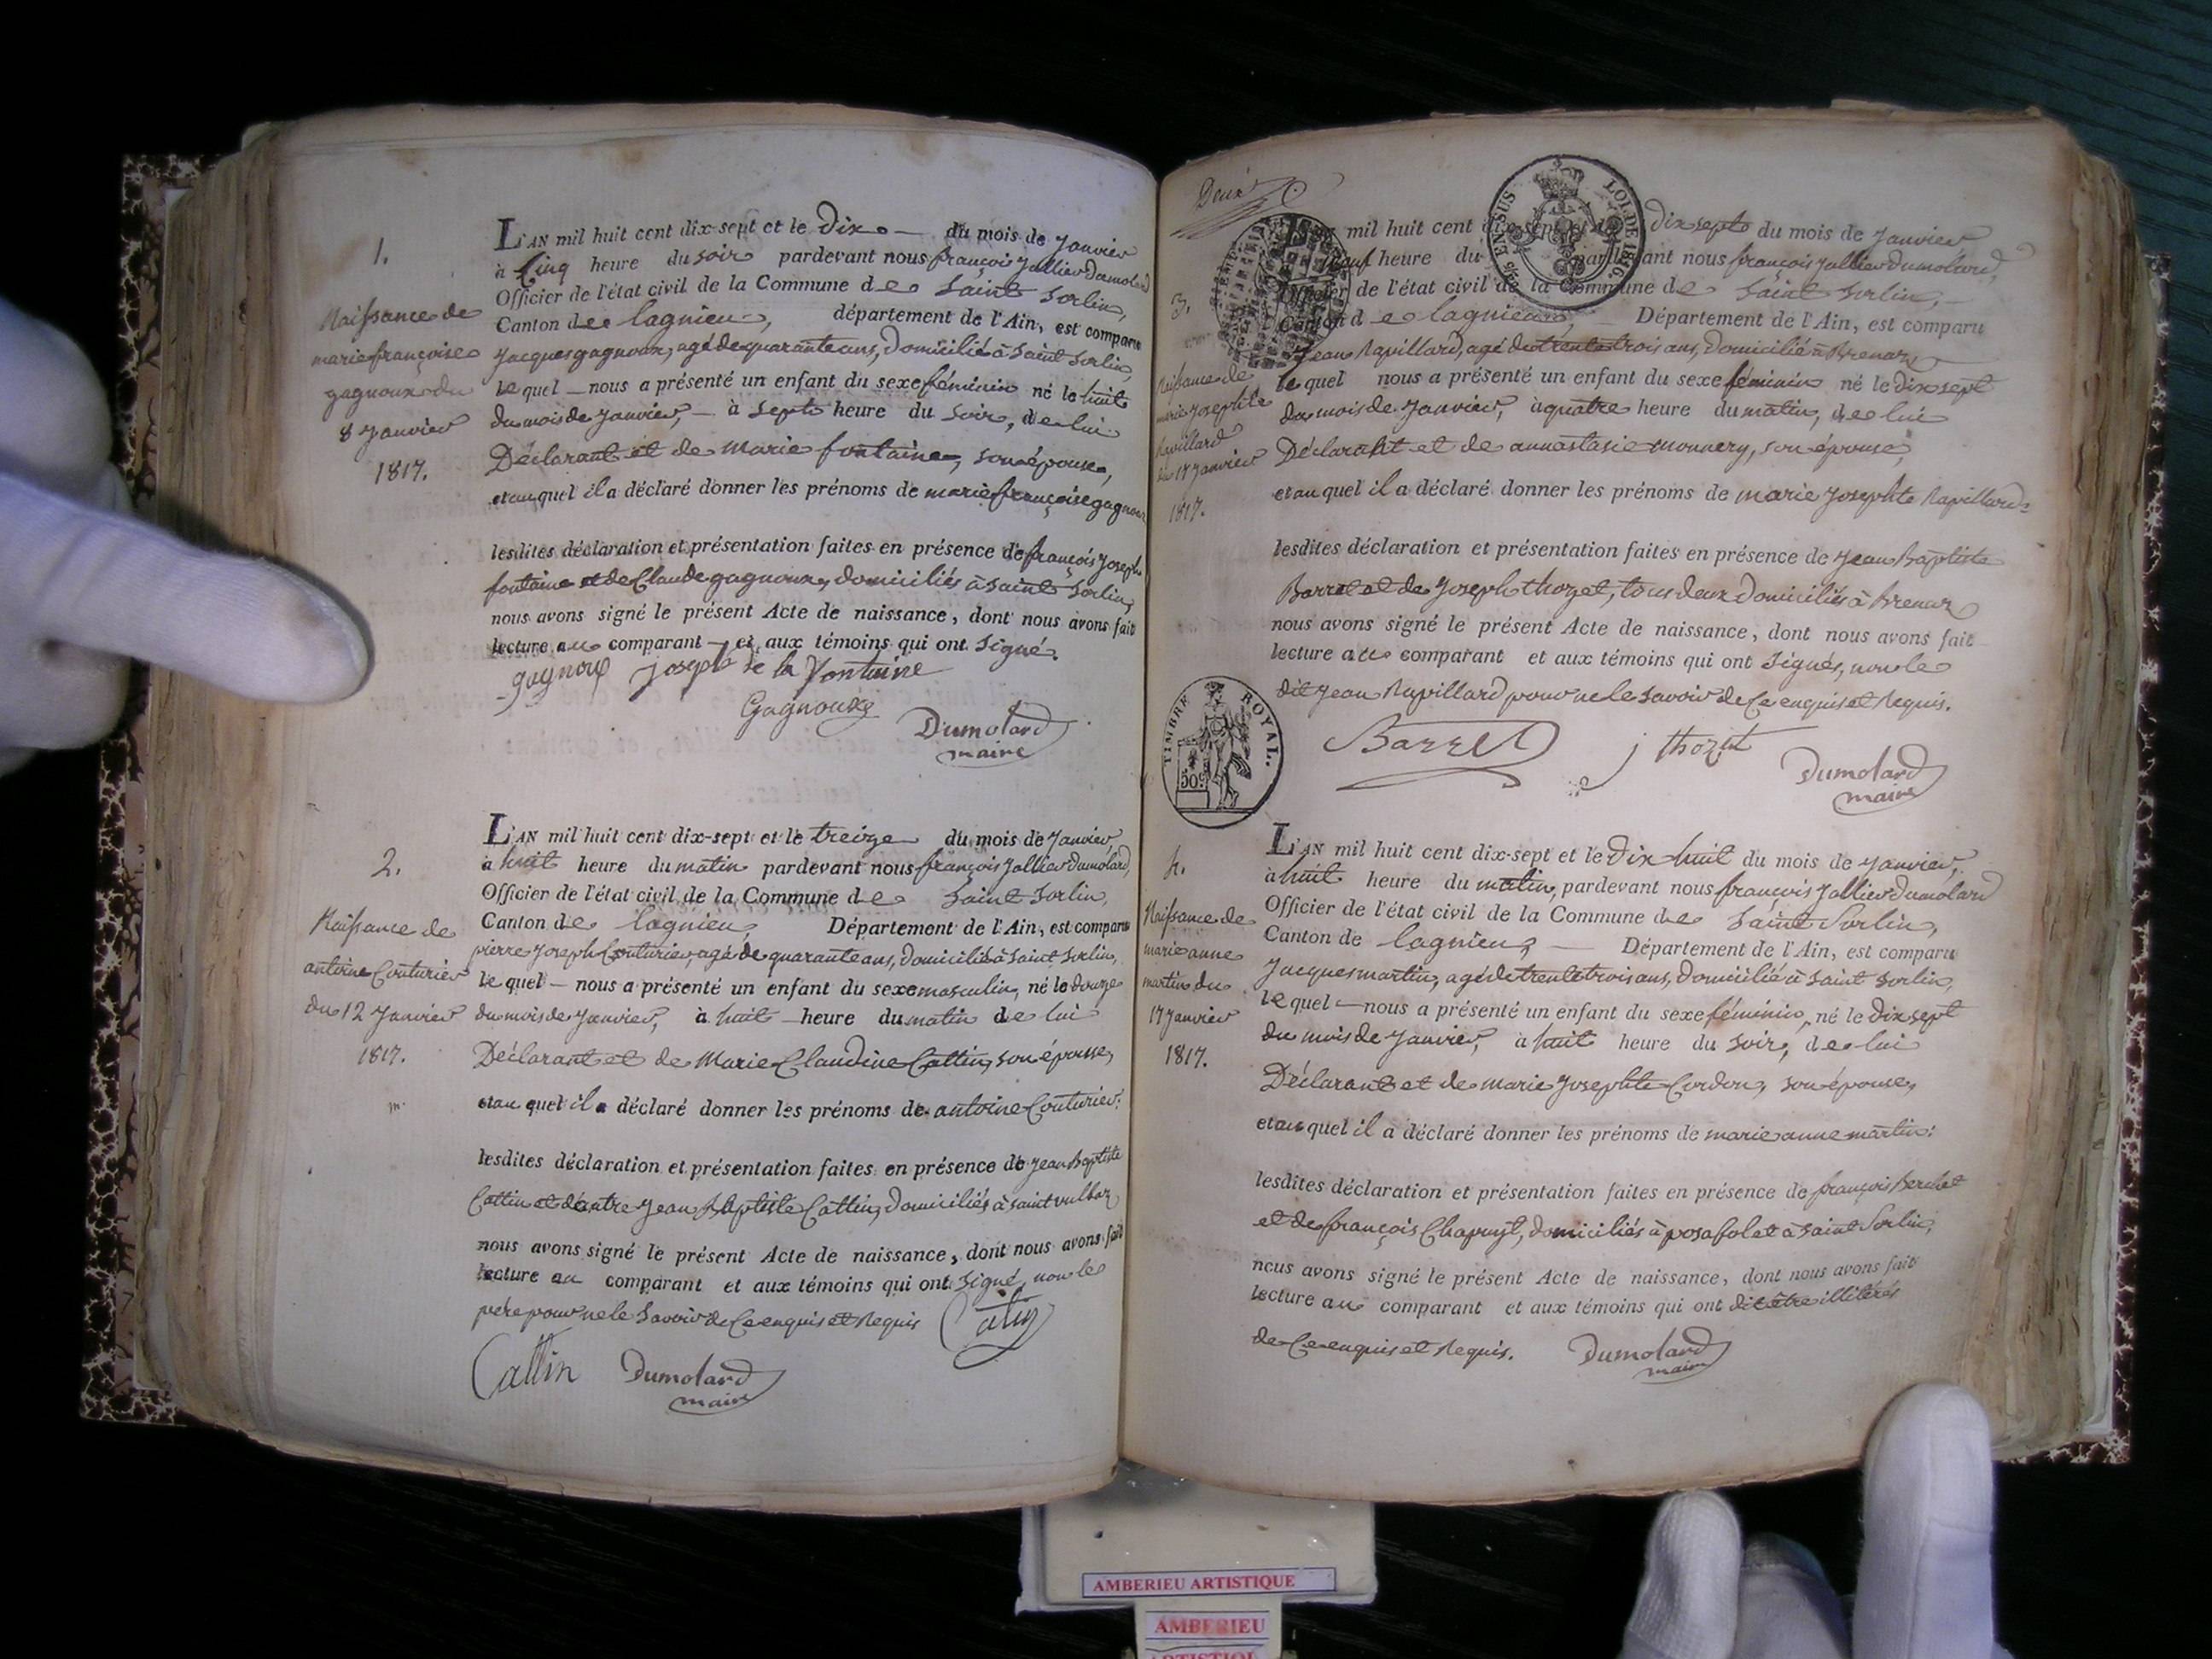 1.
Naissance de
marie françoise
gagnoux du
8 Janvier
1817.
L'AN mil huit cent dix-sept et le Dix du mois de Janvier
à Cinq heure du soir pardevant nous françois Jallier Dumolard
Officier de l'état civil de la Commune de Saint Sorlin,
Canton de lagnieu, département de l'Ain, est comparu
Jacques gagnoux, agé de quarante ans, Domicilié à Saint Sorlin,
le quel nous a présenté un enfant du sexe féminin né le huit
du mois de Janvier, à sept heure du soir, de lui
Déclarant et de marie fontaine, son épouse,
et au quel il a déclaré donner les prénoms de marie françoise gagnoux
lesdites déclaration et présentation faites en présence de françois Joseph
fontaine et de Claude gagnoux, domiciliés à saint Sorlin,
nous avons signé le présent Acte de naissance, dont nous avons fait
lecture au comparant et aux témoins qui ont signé.
gagnoux Joseph de la Fontaine
Gagnoux
Dumolard
maire
2.
Naissance de
antoine Couturier
du 12 Janvier
1817.
L'AN mil huit cent dix-sept et le treize du mois de Janvier,
à huit heure du matin pardevant nous françois Jallier Dumolard,
Officier de l'état civil de la Commune de Saint Sorlin,
Canton de lagnieu, Département de l'Ain, est comparu
pierre Joseph Couturier, agé de quarante ans, Domicilié à saint Sorlin,
le quel nous a présenté un enfant du sexe masculin, né le douze
du mois de Janvier, à huit heure du matin de lui
Déclarant et de Marie Claudine Cattin, son épouse,
et au quel il a déclaré donner les prénoms de antoine Couturier.
lesdites déclaration et présentation faites en présence de Jean Baptiste
Cattin et d'autre Jean Baptiste Cattin, domiciliés à saint vulbaz
nous avons signé le présent Acte de naissance, dont nous avons fait
lecture au comparant et aux témoins qui ont signé, non le
père pour ne le savoir de ce enquis et Requis
Catin
Cattin Dumolard
maire
Deux
LOI DE 1816.
3.
Naissance de
marie Josephte
Rapillard
du 17 Janvier
1817.
mil huit cent dix-sept et le Dix sept du mois de Janvier
neuf heure du pardevant nous françois Jallier Dumolard,
Officier de l'état civil de la Commune de Saint Sorlin,
Canton de lagnieu, Département de l'Ain, est comparu
Jean Rapillard, agé de trente trois ans, Domicilié à Brenaz
le quel nous a présenté un enfant du sexe féminin né le dix sept
du mois de Janvier, à quatre heure du matin, de lui
Déclarant et de annastasie monnery, son épouse,
et au quel il a déclaré donner les prénoms de marie Josephte Rapillard
lesdites déclaration et présentation faites en présence de Jean Baptiste
Barret et de Joseph thozet, tous deux Domiciliés à Brenaz
nous avons signé le présent Acte de naissance, dont nous avons fait
lecture au comparant et aux témoins qui ont signés, non le
dit Jean Rapillard pour ne le savoir de Ce enquis et Requis.
TIMBRE ROYAL.
50c
Barret j thozet
Dumolard
maire
4.
Naissance de
marie anne
martin du
17 Janvier
1817.
L'AN mil huit cent dix-sept et le Dix huit du mois de Janvier,
à huit heure du matin, pardevant nous françois Jallier Dumolard
Officier de l'état civil de la Commune de Saint Sorlin,
Canton de lagnieu, Département de l'Ain, est comparu
Jacques martin, agé de trente trois ans, domicilié à Saint Sorlin,
le quel nous a présenté un enfant du sexe féminin, né le Dix sept
du mois de Janvier, à huit heure du soir, de lui
Déclarant et de marie Josephte Cordon, son épouse,
et au quel il a déclaré donner les prénoms de marie anne martin.
lesdites déclaration et présentation faites en présence de françois Berchet
et de françois Chapuyt, domiciliés à posafol et à saint Sorlin,
nous avons signé le présent Acte de naissance, dont nous avons fait
lecture au comparant et aux témoins qui ont dit être illitérés
de Ce enquis et Requis. Dumolard
maire
AMBERIEU ARTISTIQUE
AMBERIEU
ARTISTIQUE